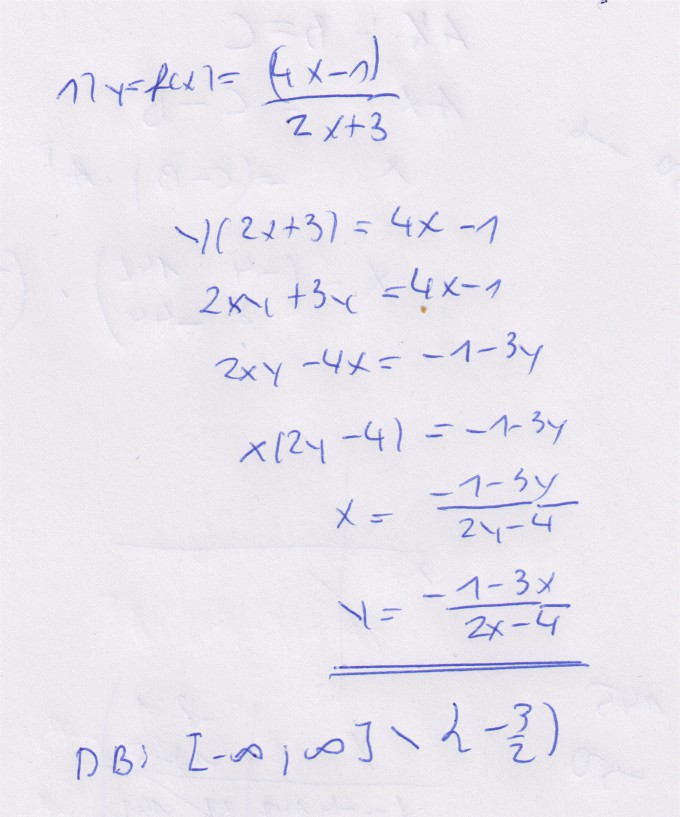 1) y=f(x)= (4x-1)/(2x+3)
y(2x+3) = 4x-1
2xy+3y = 4x-1
2xy-4x = -1-3y
x(2y-4) = -1-3y
x = (-1-3y)/(2y-4)
y = (-1-3x)/(2x-4)
DB: [-∞;∞] \ {-3/2}